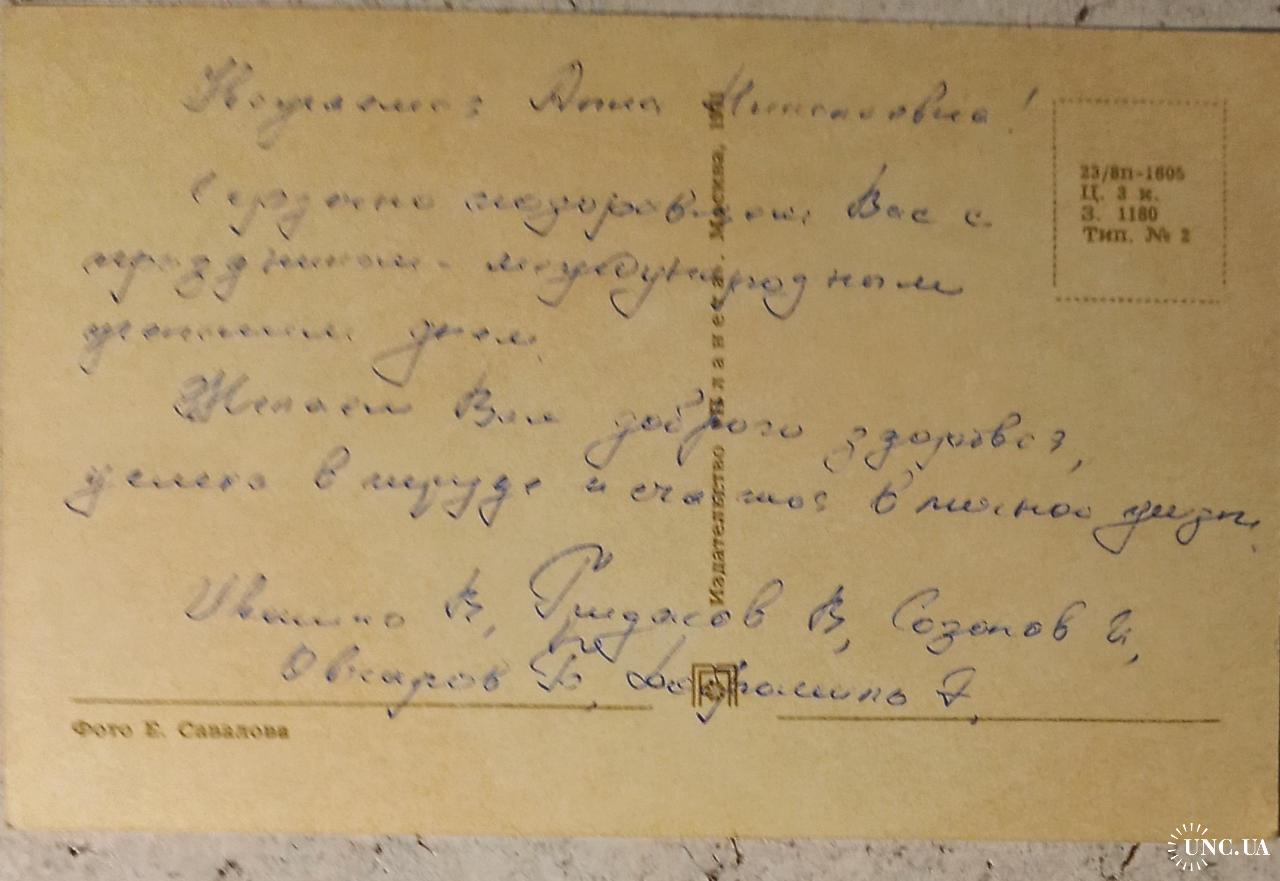 Уважаемая Анна Николаевна!
Сердечно поздравляем Вас с
праздником - международным
женским днем.
Желаем Вам доброго здоровья,
успеха в труде и счастья в личной жизни.
Ивашко В, Гридасов В, Созонов И,
Овчаров Б,
Фото Е. Савалова
Издательство «Планета». Москва, 19
23/8п-1605
Ц. 3 к.
З. 1180
Тип. № 2
UNC.UA